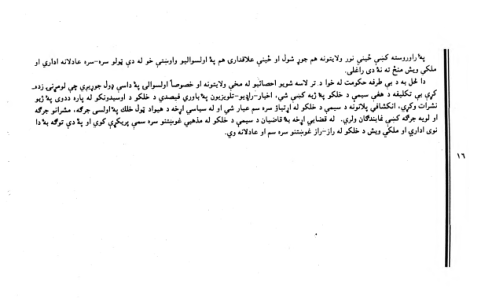 په راوروسته کښي ځيني نور ولايتونه هم جوړ شول او ځيني علاقداري هم په اولسواليو واوښتي خو له دي ټولو سره-سره عادلانه اداري او
ملکي ويش منځ ته نه دی راغلی.
دا ځل به د بي طرفه حکومت له خوا د تر لاسه شويو احصائيو له مخي ولايتونه او خصوصاً اولسوالی په داسي ډول جوړيږي چي لومړنی زده-
کړي بي تکليفه د هغي سيمي د خلکو په ژبه کښي شي، اخبار-راډيو-تلويزيون په باوري فيصدي د خلکو د اوسيدونکو له پاره ددوی په ژبو
نشرات وکړي، انکشافي پلانونه د سيمي د خلکو له اړتياؤ سره سم عيار شي او له سياسي اړخه د هيواد ټول خلك په اولسي جرګه، مشرانو جرګه
او لويه جرګه کښي نمايندګان ولري. له قضايي اړخه به قاضيان د سيمي د خلکو له مذهبي غوښتنو سره سمي پريکړي کوي او په دي توګه به دا
نوی اداري او ملکي ويش د خلکو له راز-راز غوښتنو سره سم او عادلانه وي.
١٦